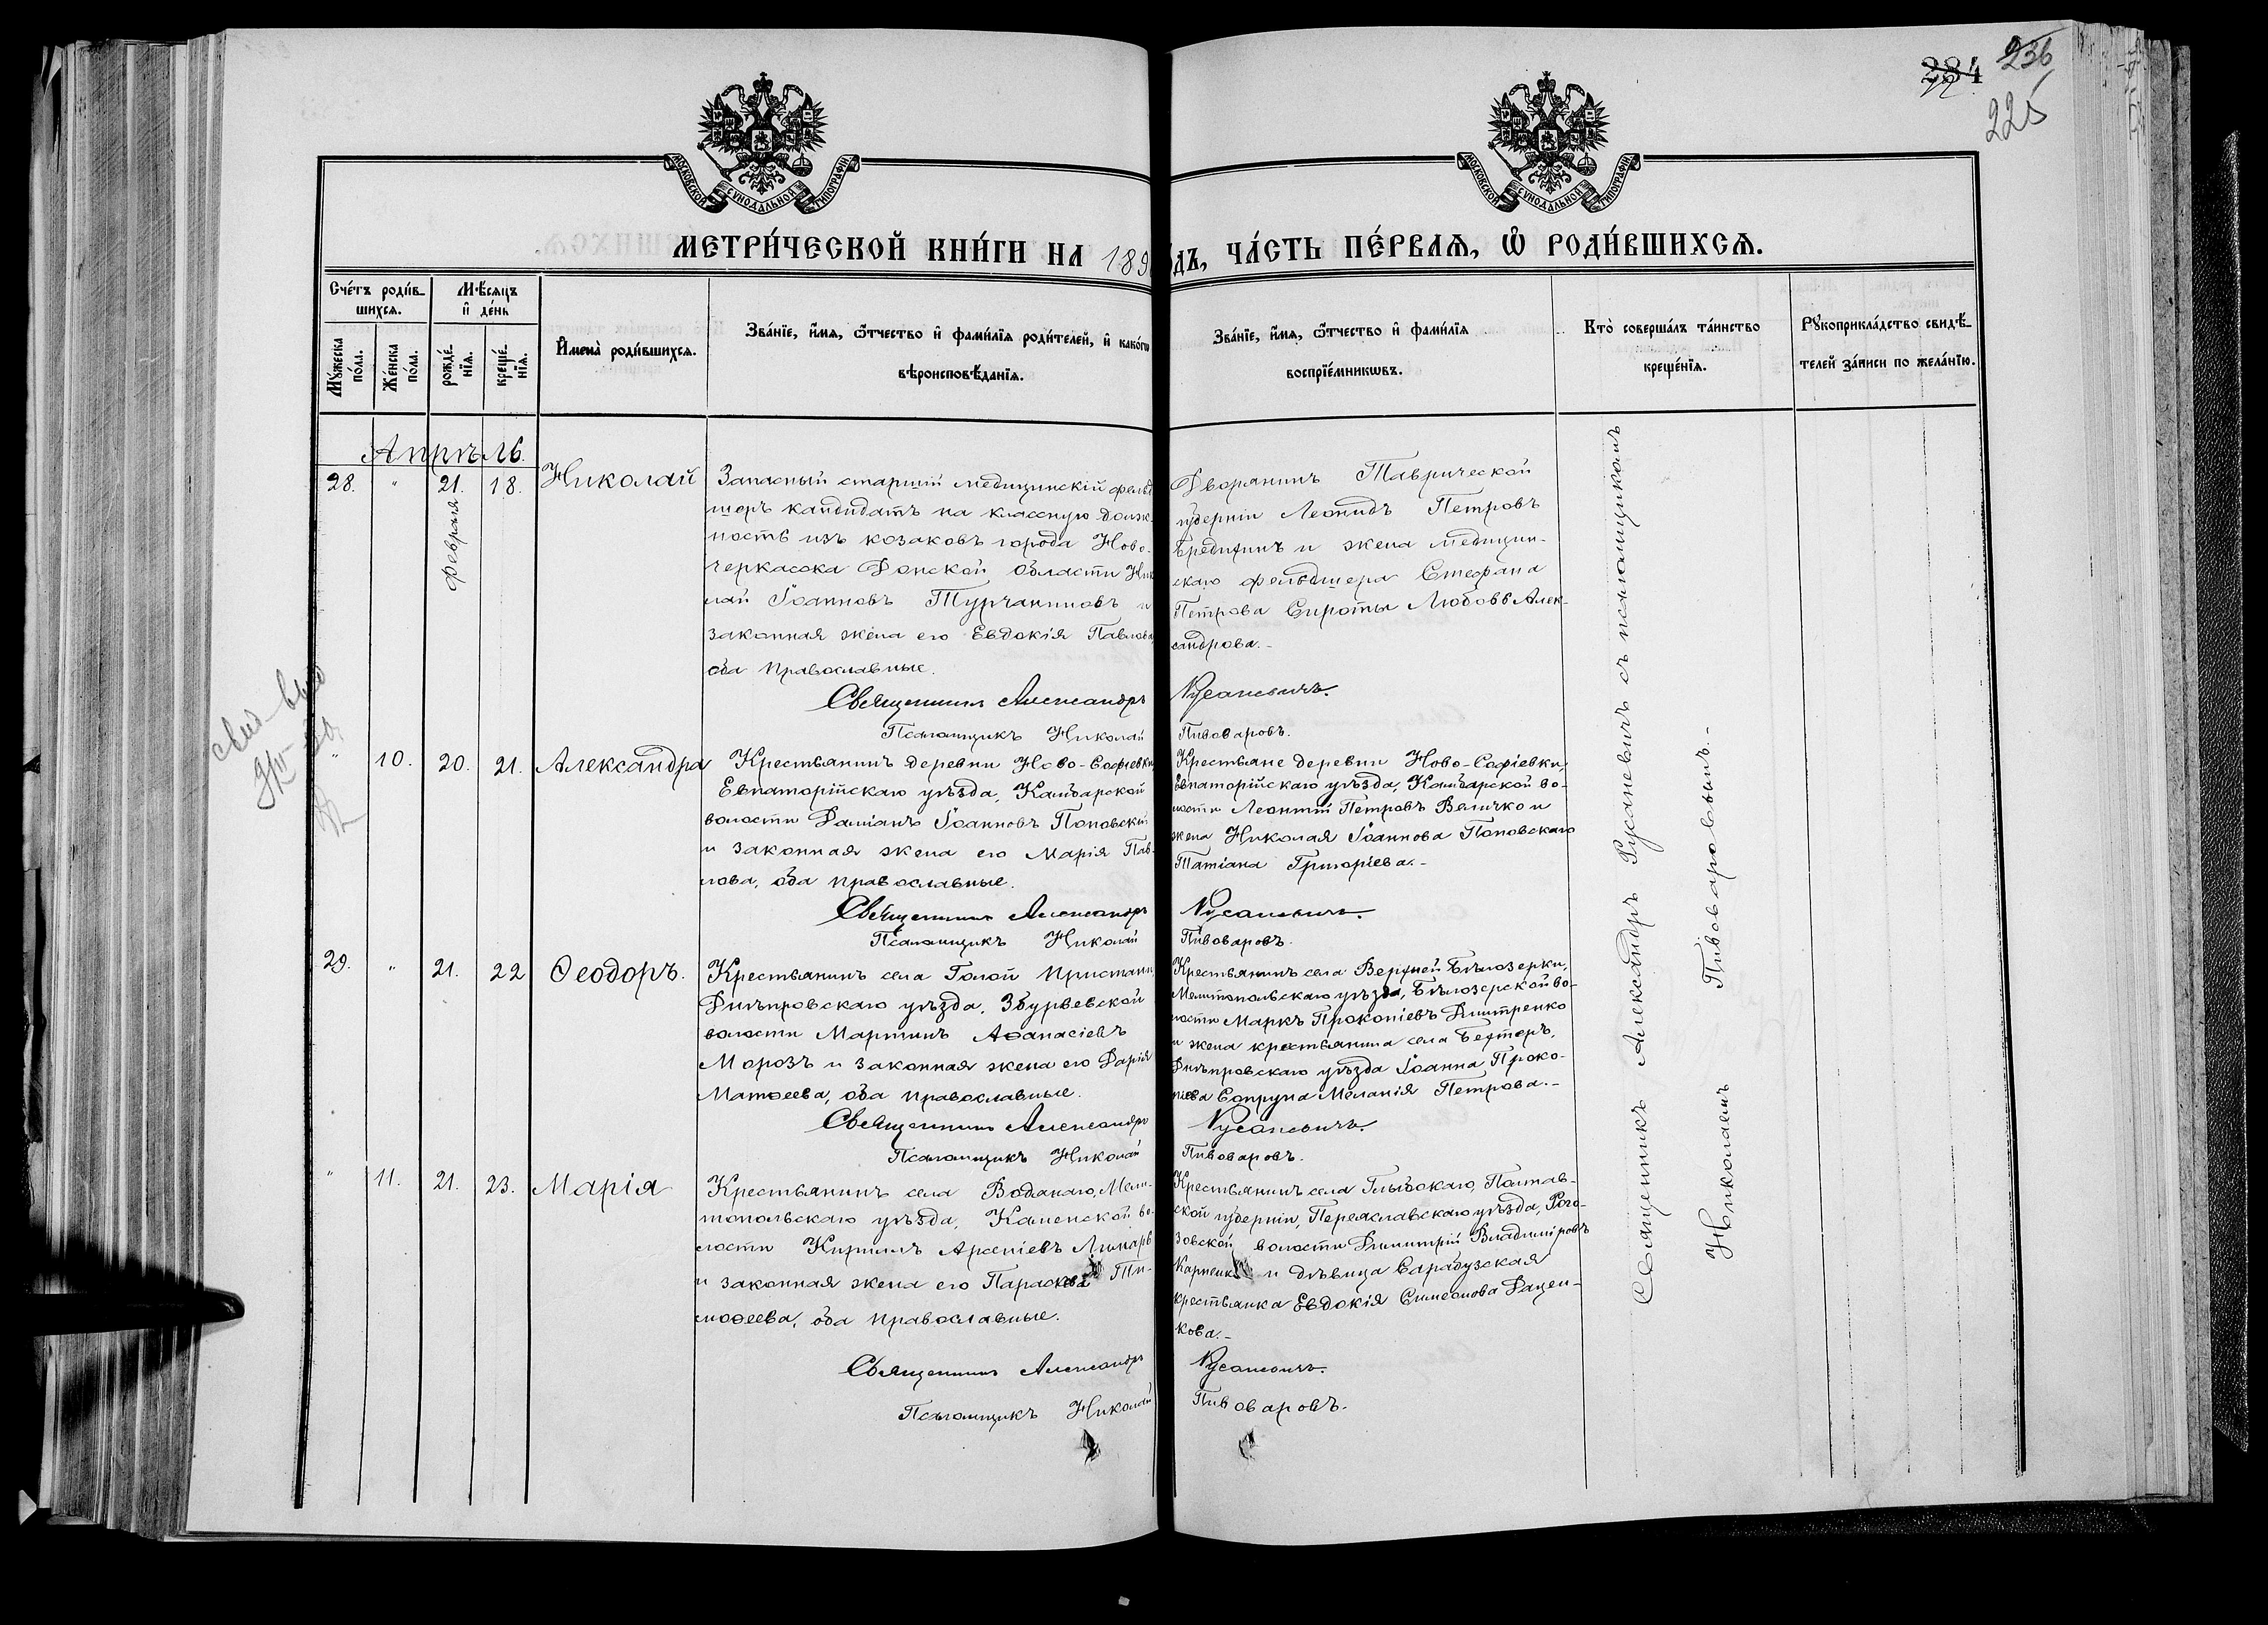 284 236
225
МОСКОВСКОЙ СѴНОДАЛЬНОЙ ТИПОГРАФІИ
МОСКОВСКОЙ СѴНОДАЛЬНОЙ ТИПОГРАФІИ
МЕТРИ́ЧЕСКОЙ КНИ́ГИ НА 189
ДЪ, ЧА́СТЬ ПЕ́РВАѦ, Ѽ РОДИ́ВШИХСѦ.
Сче́тъ роди́в-
шихсѧ.
Мꙋ́жеска по́ла.
Же́нска по́ла.
Мѣ́сѧцъ
и҆ де́нь
рожде́нїѧ.
креще́нїѧ.
И҆мена̀ роди́вшихсѧ.
Зва́нїе, и҆́мѧ, ѻ҆́тчество и҆ фами́лїѧ роди́телей, и҆ како́гѡ
вѣроисповѣ́данїѧ.
Зва́нїе, и҆́мѧ, ѻ҆́тчество и҆ фами́лїѧ
воспрїе́мникѡвъ.
Кто̀ соверша́лъ та́инство
креще́нїѧ.
Рꙋкоприкла́дство свидѣ́-
телей за́писи по жела́нїю.
Апрѣль.
28. " 21. 18. Николай
Февраля
Запасный старшій медицинскій фельд
шеръ кандидатъ на классную долж-
ность изъ козаковъ города Ново-
черкасска Донской Области Ник
лай Іоанновъ Турчаниновъ и
законная жена его Евдокія Павлова,
оба православные.
Священникъ Александръ
Псаломщикъ Николай
Дворянинъ Таврической
губерніи Леонидъ Петровъ
Бредихинъ и жена медицин-
скаго фельдшера Стефана
Петрова Сироты Любовь Алек-
сандрова.-
Русаневичъ.
Пивоваровъ.
" 10. 20. 21. Александра
Крестьянинъ деревни Ново-Софіевки
Евпаторійскаго уѣзда, Камбарской
волости Даміанъ Іоанновъ Поповскій
и законная жена его Марія Пав-
лова, оба православные.
Священникъ Александръ
Псаломщикъ Николай
Крестьяне деревни Ново-Софіевки,
Евпаторійскаго уѣзда, Камбарской во-
лости Леонтій Петровъ Величко и
жена Николая Іоаннова Поповскаго
Татіана Григоріева.-
Русаневичъ.
Пивоваровъ.
29. " 21. 22 Ѳеодоръ.
Крестьянинъ села Голой Пристани
Днѣпровскаго уѣзда, Збурьевской
волости Мартинъ Аѳанасіевъ
Морозъ и законная жена его Дарія
Матѳеева, оба православные.
Священникъ Александръ
Псаломщикъ Николай
Крестьянинъ села Верхней Бѣлозерки,
Мелитопольскаго уѣзда, Бѣлозерской во-
лости Маркъ Прокопіевъ Дмитренко
и жена крестьянина села Бехтеръ,
Днѣпровскаго уѣзда Іоанна Проко-
піева Сопруна Меланія Петрова.-
Русаневичъ.
Пивоваровъ.
" 11. 21. 23. Марія
Крестьянинъ села Водянаго, Мели-
топольскаго уѣзда, Каменской во-
лости Кириллъ Арсеніевъ Линарь
и законная жена его Параскева Ти-
моѳеева, оба православные.
Священникъ Александръ
Псаломщикъ Николай
Крестьянинъ села Глыбокаго, Полтав-
ской губерніи, Переяславскаго уѣзда, Рого-
зовской волости Димитрій Владиміровъ
Карпенко и дѣвица Сарабузская
крестьянка Евдокія Симеонова Дацен-
кова.-
Русаневичъ.
Пивоваровъ.
Священникъ Александръ Русаневичъ съ псаломщикомъ
Николаемъ Пивоваровымъ.-